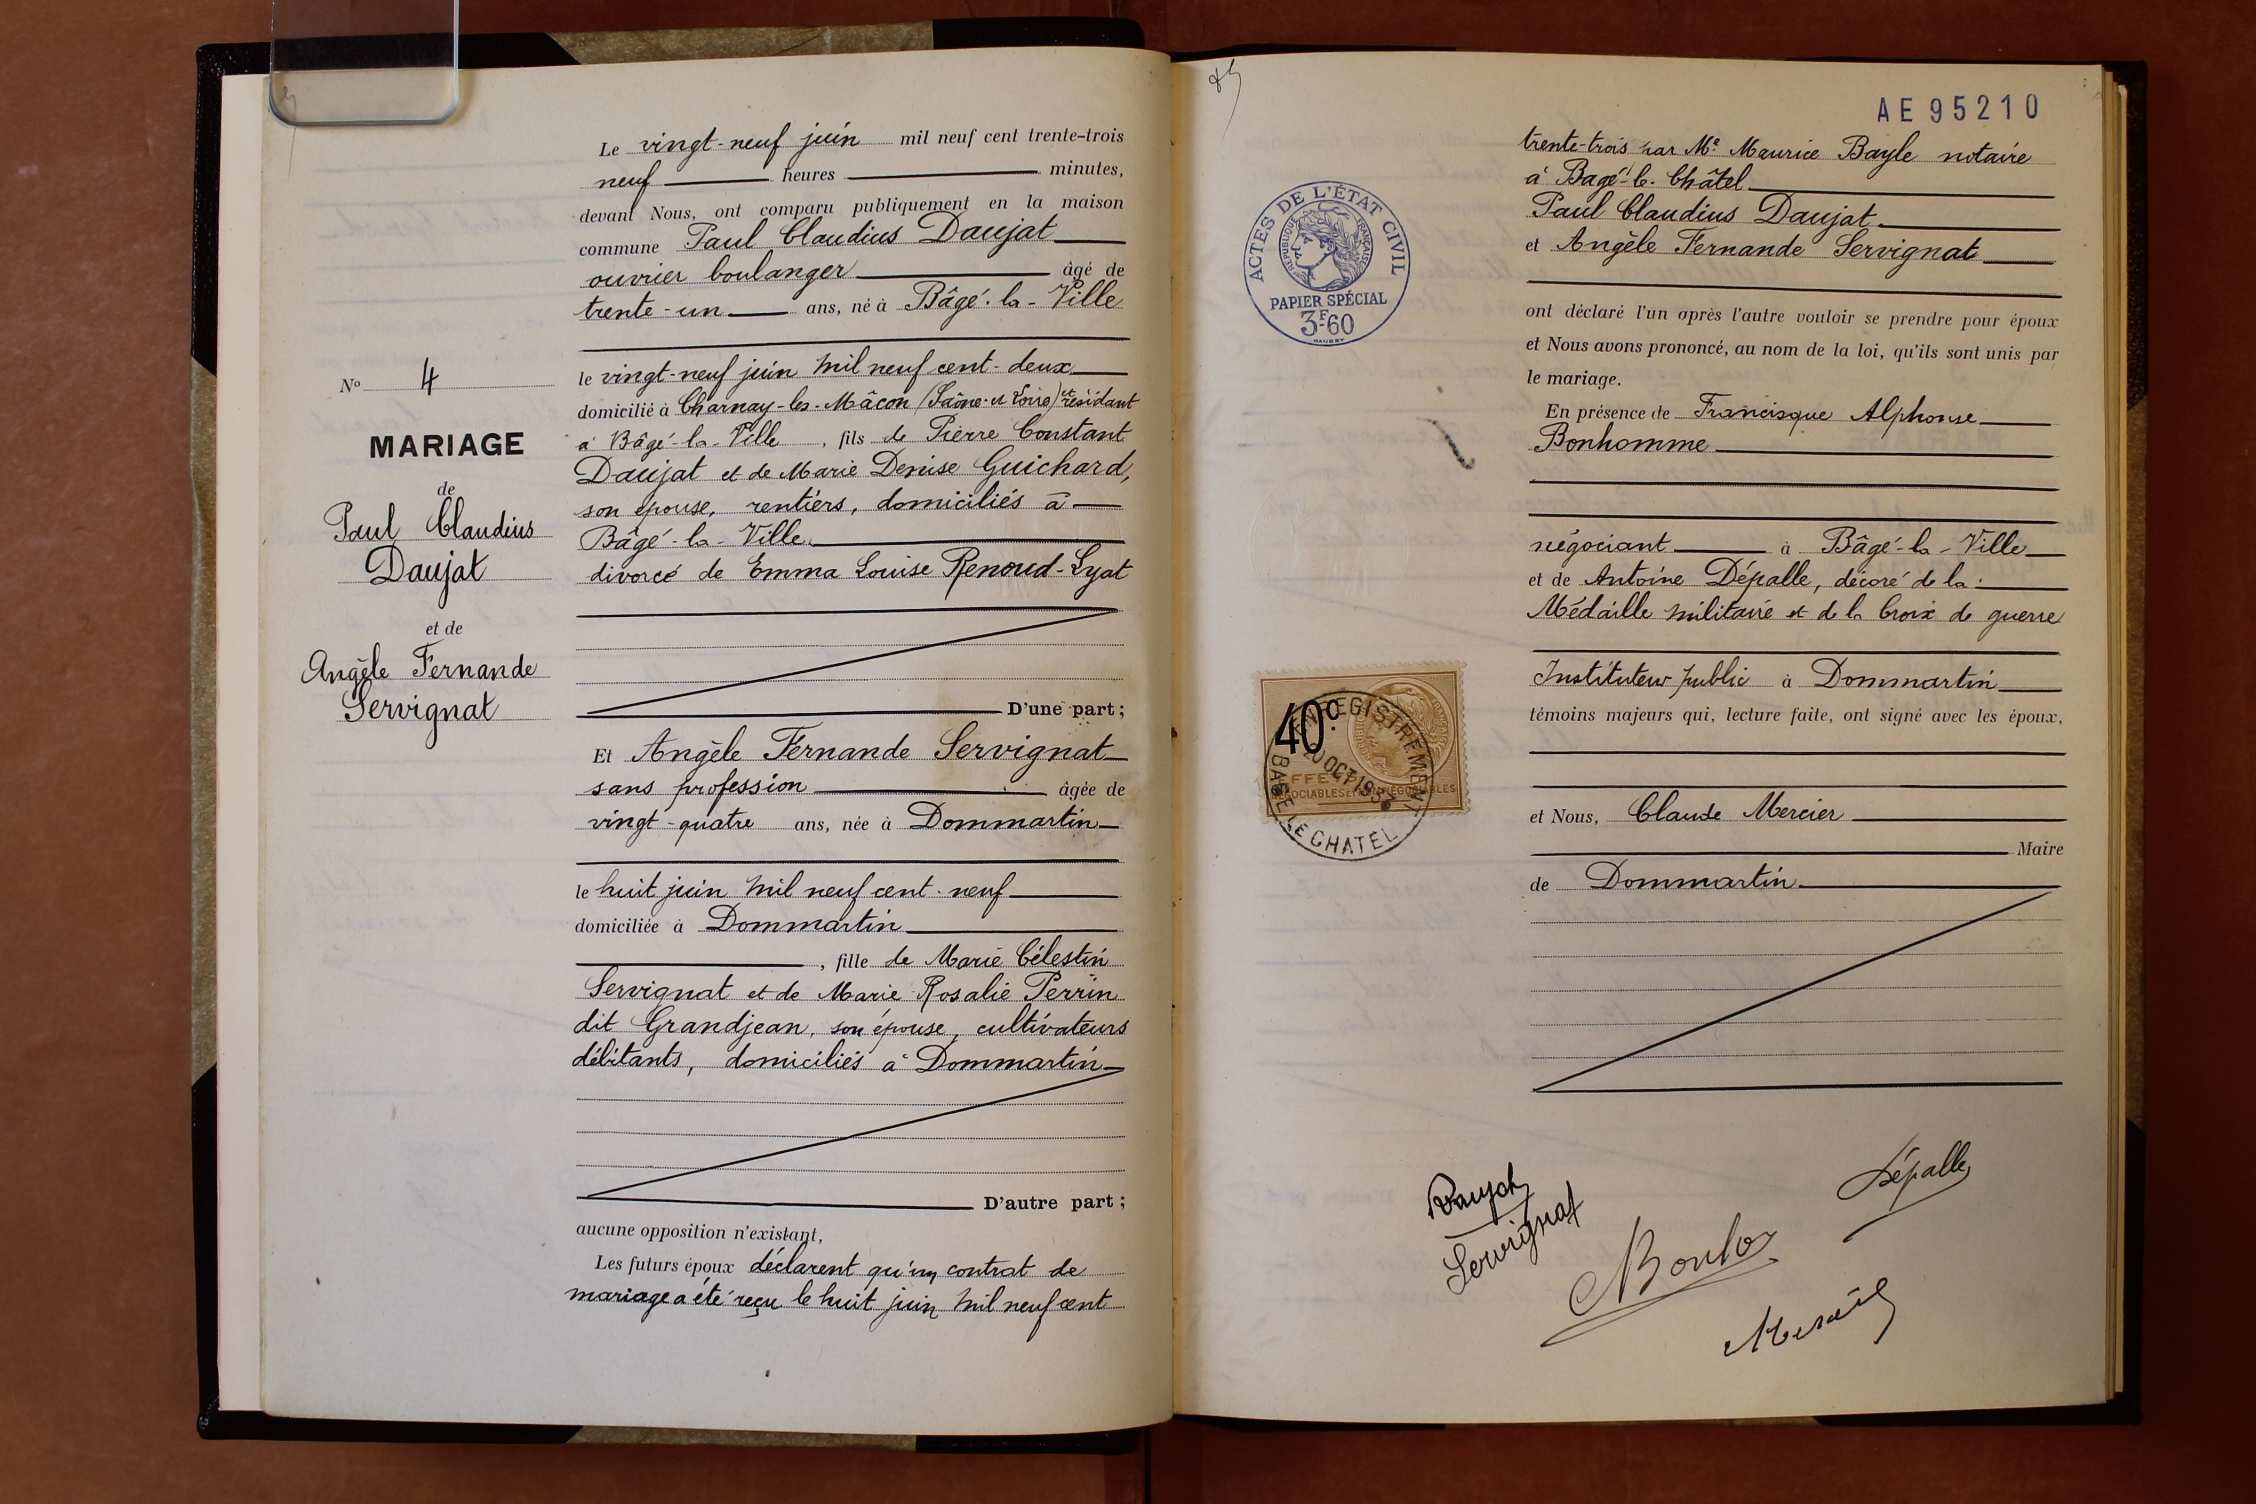 Le vingt-neuf juin mil neuf cent trente-trois
neuf heures minutes,
devant Nous, ont comparu publiquement en la maison
commune Paul Claudius Daujat
ouvrier boulanger âgé de
trente-un ans, né à Bâgé-la-Ville
le vingt-neuf juin mil neuf cent-deux
domicilié à Charnay-les-Mâcon (Saône-et Loire) et résidant
à Bâgé-la-Ville, fils de Pierre Constant
Daujat et de Marie Denise Guichard,
son épouse, rentiers, domiciliés à
Bâgé-la-Ville
divorcé de Emma Louise Renoud-Lyat
D'une part;
Et Angèle Fernande Servignat
sans profession âgée de
vingt-quatre ans, née à Dommartin
le huit juin mil neuf cent-neuf
domiciliée à Dommartin
, fille de Marie Célestin
Servignat et de Marie Rosalie Perrin
dit Grandjean, son épouse, cultivateurs
débitants, domiciliés à Dommartin
D'autre part;
aucune opposition n'existant,
Les futurs époux déclarent qu'un contrat de
mariage a été reçu le huit juin mil neuf cent
No 4
MARIAGE
de
Paul Claudius
Daujat
et de
Angèle Fernande
Servignat
AE 95210
trente-trois par Me Maurice Bayle notaire
à Bagé-le-Châtel
Paul Claudius Daujat
et Angèle Fernande Servignat
ont déclaré l'un après l'autre vouloir se prendre pour époux
et Nous avons prononcé, au nom de la loi, qu'ils sont unis par
le mariage.
En présence de Francisque Alphonse
Bonhomme
négociant à Bâgé-la-Ville
et de Antoine Dépalle, décoré de la
Médaille militaire et de la Croix de guerre
Instituteur public à Dommartin
témoins majeurs qui, lecture faite, ont signé avec les époux,
et Nous, Claude Mercier
Maire
de Dommartin
ACTES DE L'ÉTAT CIVIL
RÉPUBLIQUE FRANÇAISE
PAPIER SPÉCIAL
3F-60
40c
ENREGISTREMENT
BAGÉ LE CHATEL
Servignat
Dépalle